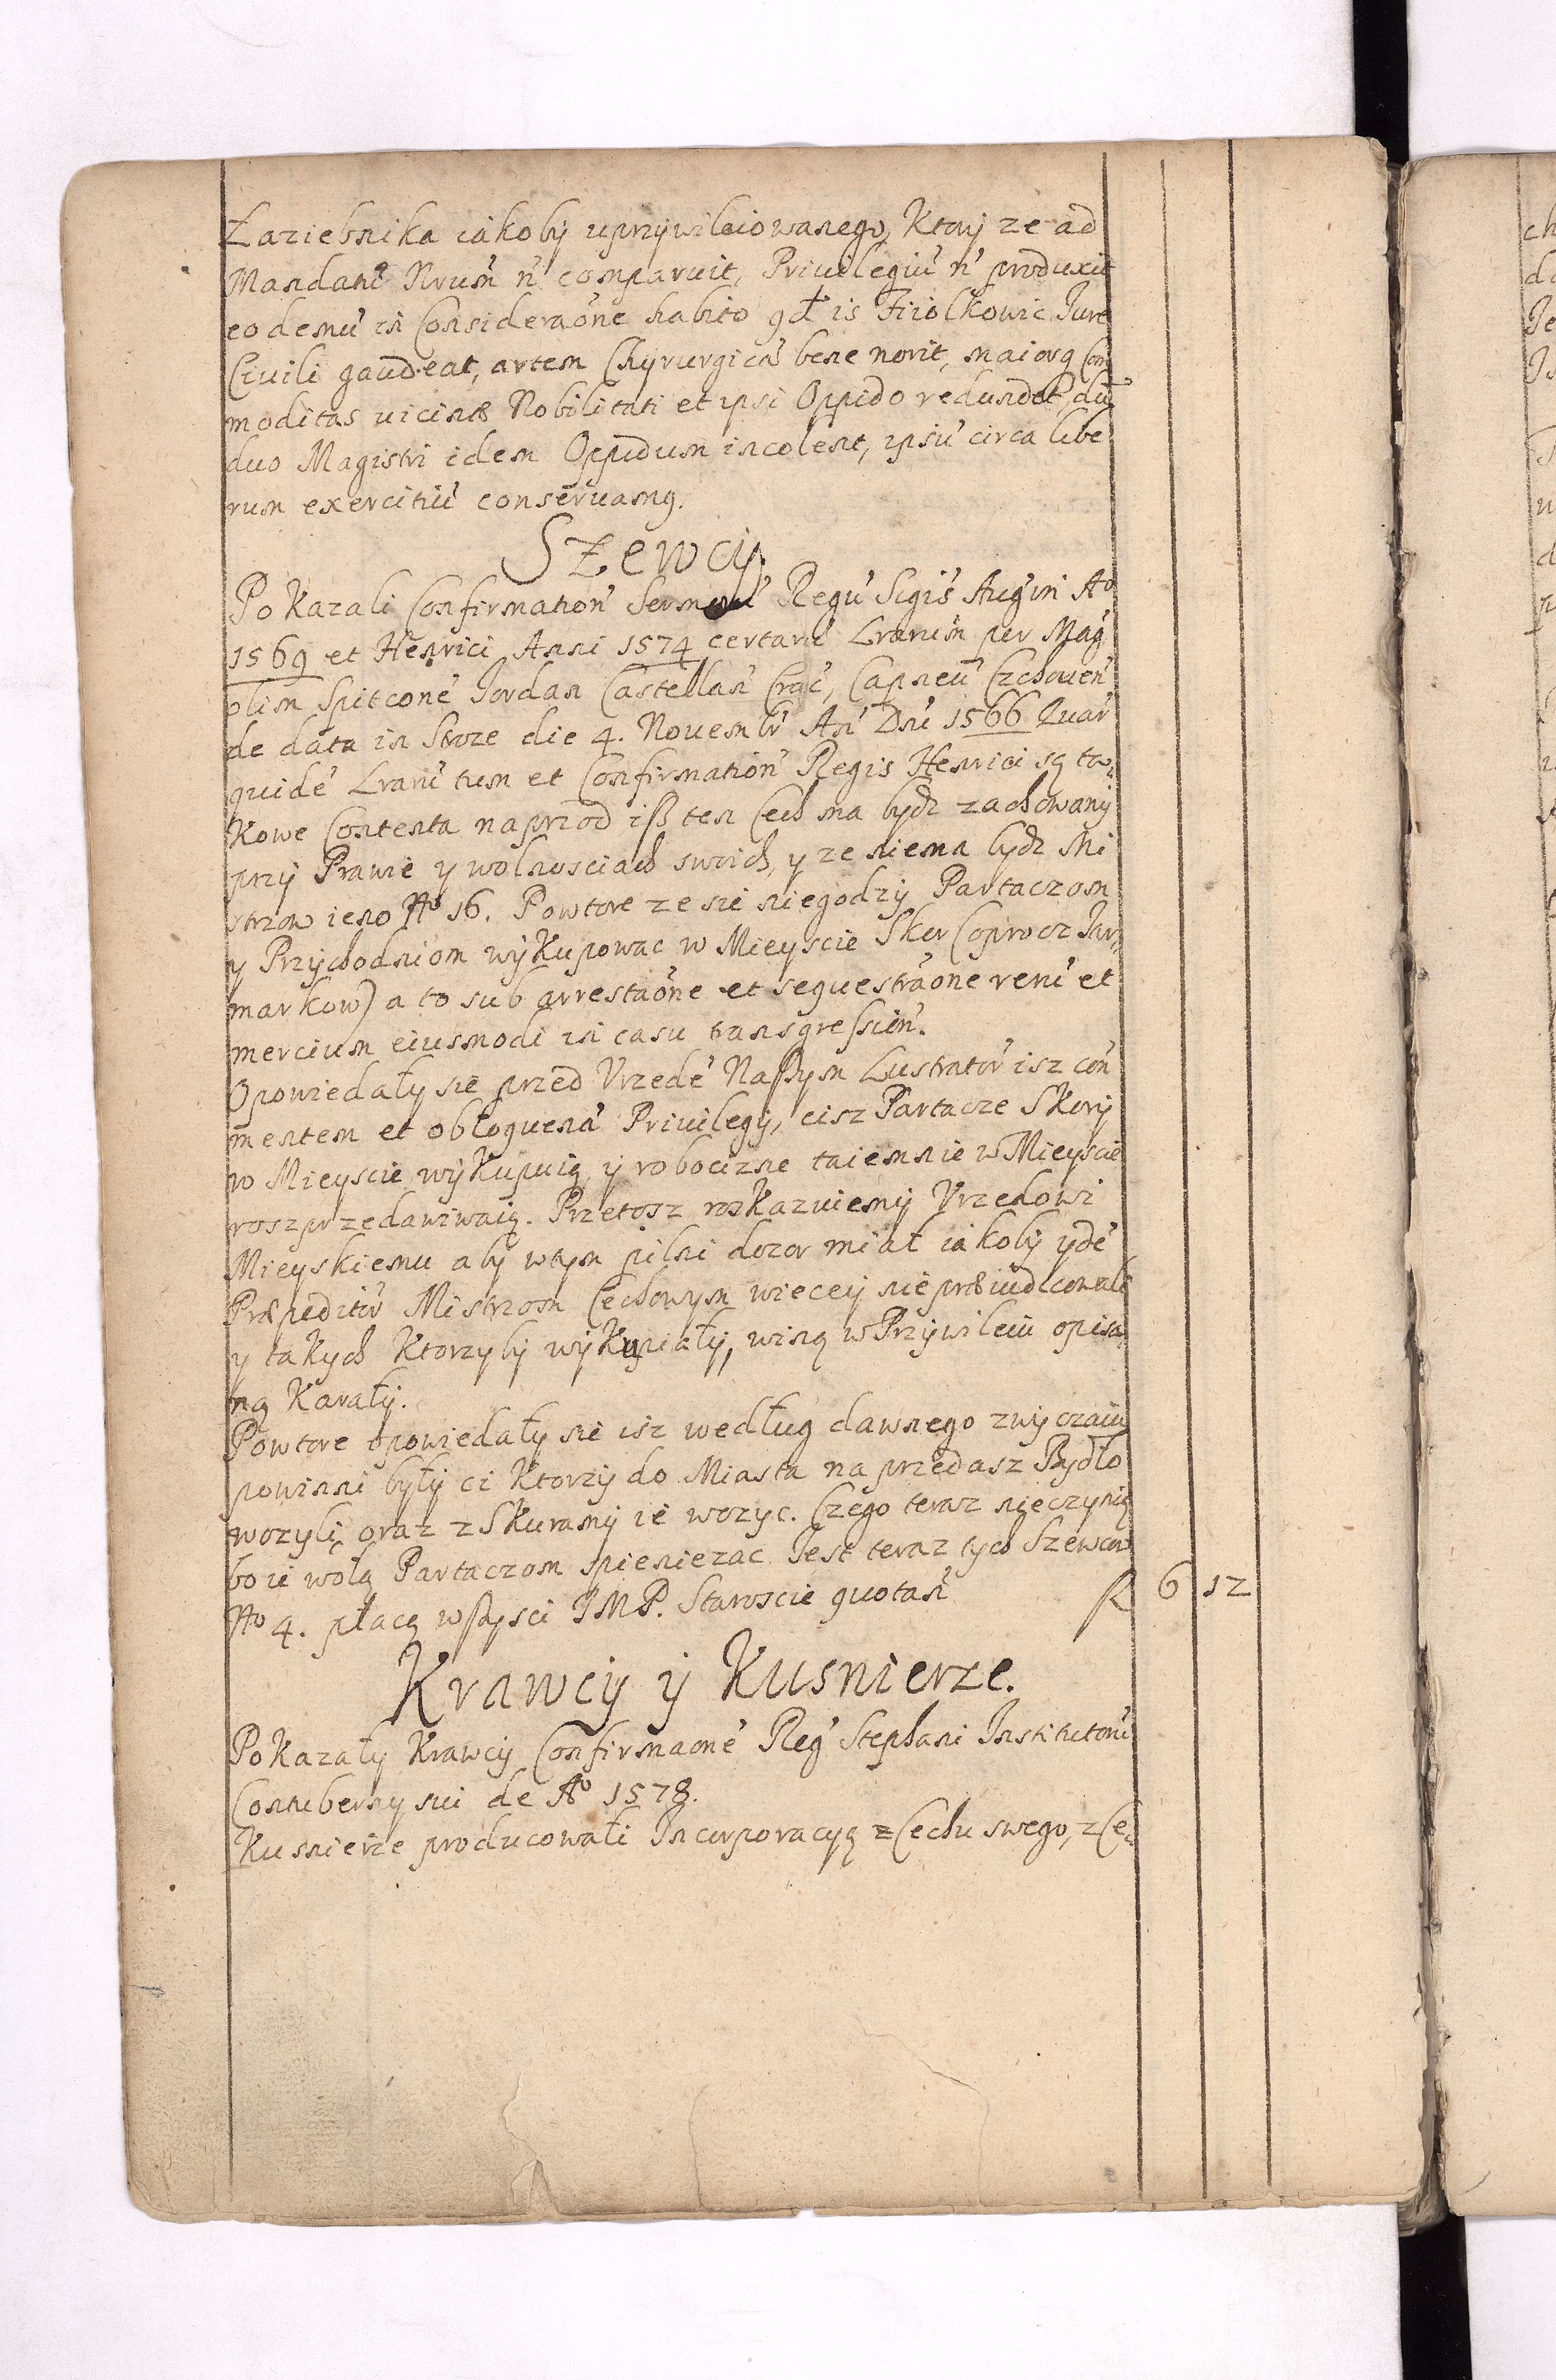 Łaziebnika iakoby uprzywileiowanego, Ktory ze ad
Mandatũ Nrum̃ ñ comparuit, Privilegiũ ñ produxit
eodemũ in Consideraõne habito qđ is Fiiolkowic Jure
Civili gaudeat, artem Chyrurgicã bene norit, maiorq Com
moditas vicinæ Nobilitati et ipsi Oppido redundet, dũ
duo Magistri idem Oppidum incolent, ipsũ circa libe
rum exercitiũ conservamq.
Szewcy.
Pokazali Confirmatioñ Sermorũ Regũ Sigis̃ Aug̃ in Aº
1569 et Henrici Anni 1574 certarũ Lrarum̃ per Mag̃
olim Spitconẽ Jordan Castellañ Crac̃, Capneũ Czchoueñ
de data in Stroze die 4. Novembr̃ Añ Dnĩ 1566 Quar̃
quidẽ Lrarũ tum et Confirmatioñ Regis Henrici są ta„
kowe Contenta naprzod iß ten Cech ma bydz zachowany
przy Prawie y wolnosciach swoich, y ze niema bydz Mi
strzow ieno Nº 16. Powtore ze sie niegodzy Partaczom
y Przychodniom wykupowac w Mieyscie Skor (oprocz Jar„
markow) a to sub arrestaõne et sequestraõne rerũ et
mercium eiusmodi in casu transgressioñ.
Opowiedały sie przed Vrzedẽ Naßym Lustrator̃ isz coñ
mentem et obloquenã Privilegy, cisz Partacze Skory
w Mieyscie wykupuią, y robocizne taiemnie w Mieyscie
roszprzedawiwaią. Przetosz roskazuiemy Vrzedowi
Mieyskiemu aby wtym pilni dozor miał iakoby ydẽ
Præpeditũ Mistrzom Cechowym wiecey nie præiudicowałõ
y takych Ktorzyby wykupiały, winą w Przywileiu opisa„
ną Karały.
Powtore opowiedały sie isz według dawnego zwyczaiu
powinni były ci Ktorzy do Miasta na przedasz Bydło
wozyli, oraz z Skuramy ie wozyc. Czego teraz nieczynią
bo ie wolą Partaczom spieniezac. Jest teraz tych Szewcow
Nº 4. płacą wßysci JMP. Staroscie quotañ f 6 12
Krawcy y Kusnierze.
Pokazały Krawcy Confirmaonẽ Reg̃ Stephani Institutorũ
Contuberny sui de Aº 1578.
Kusnierze producowali Incorporacyą z Cechu swego, z Ce„